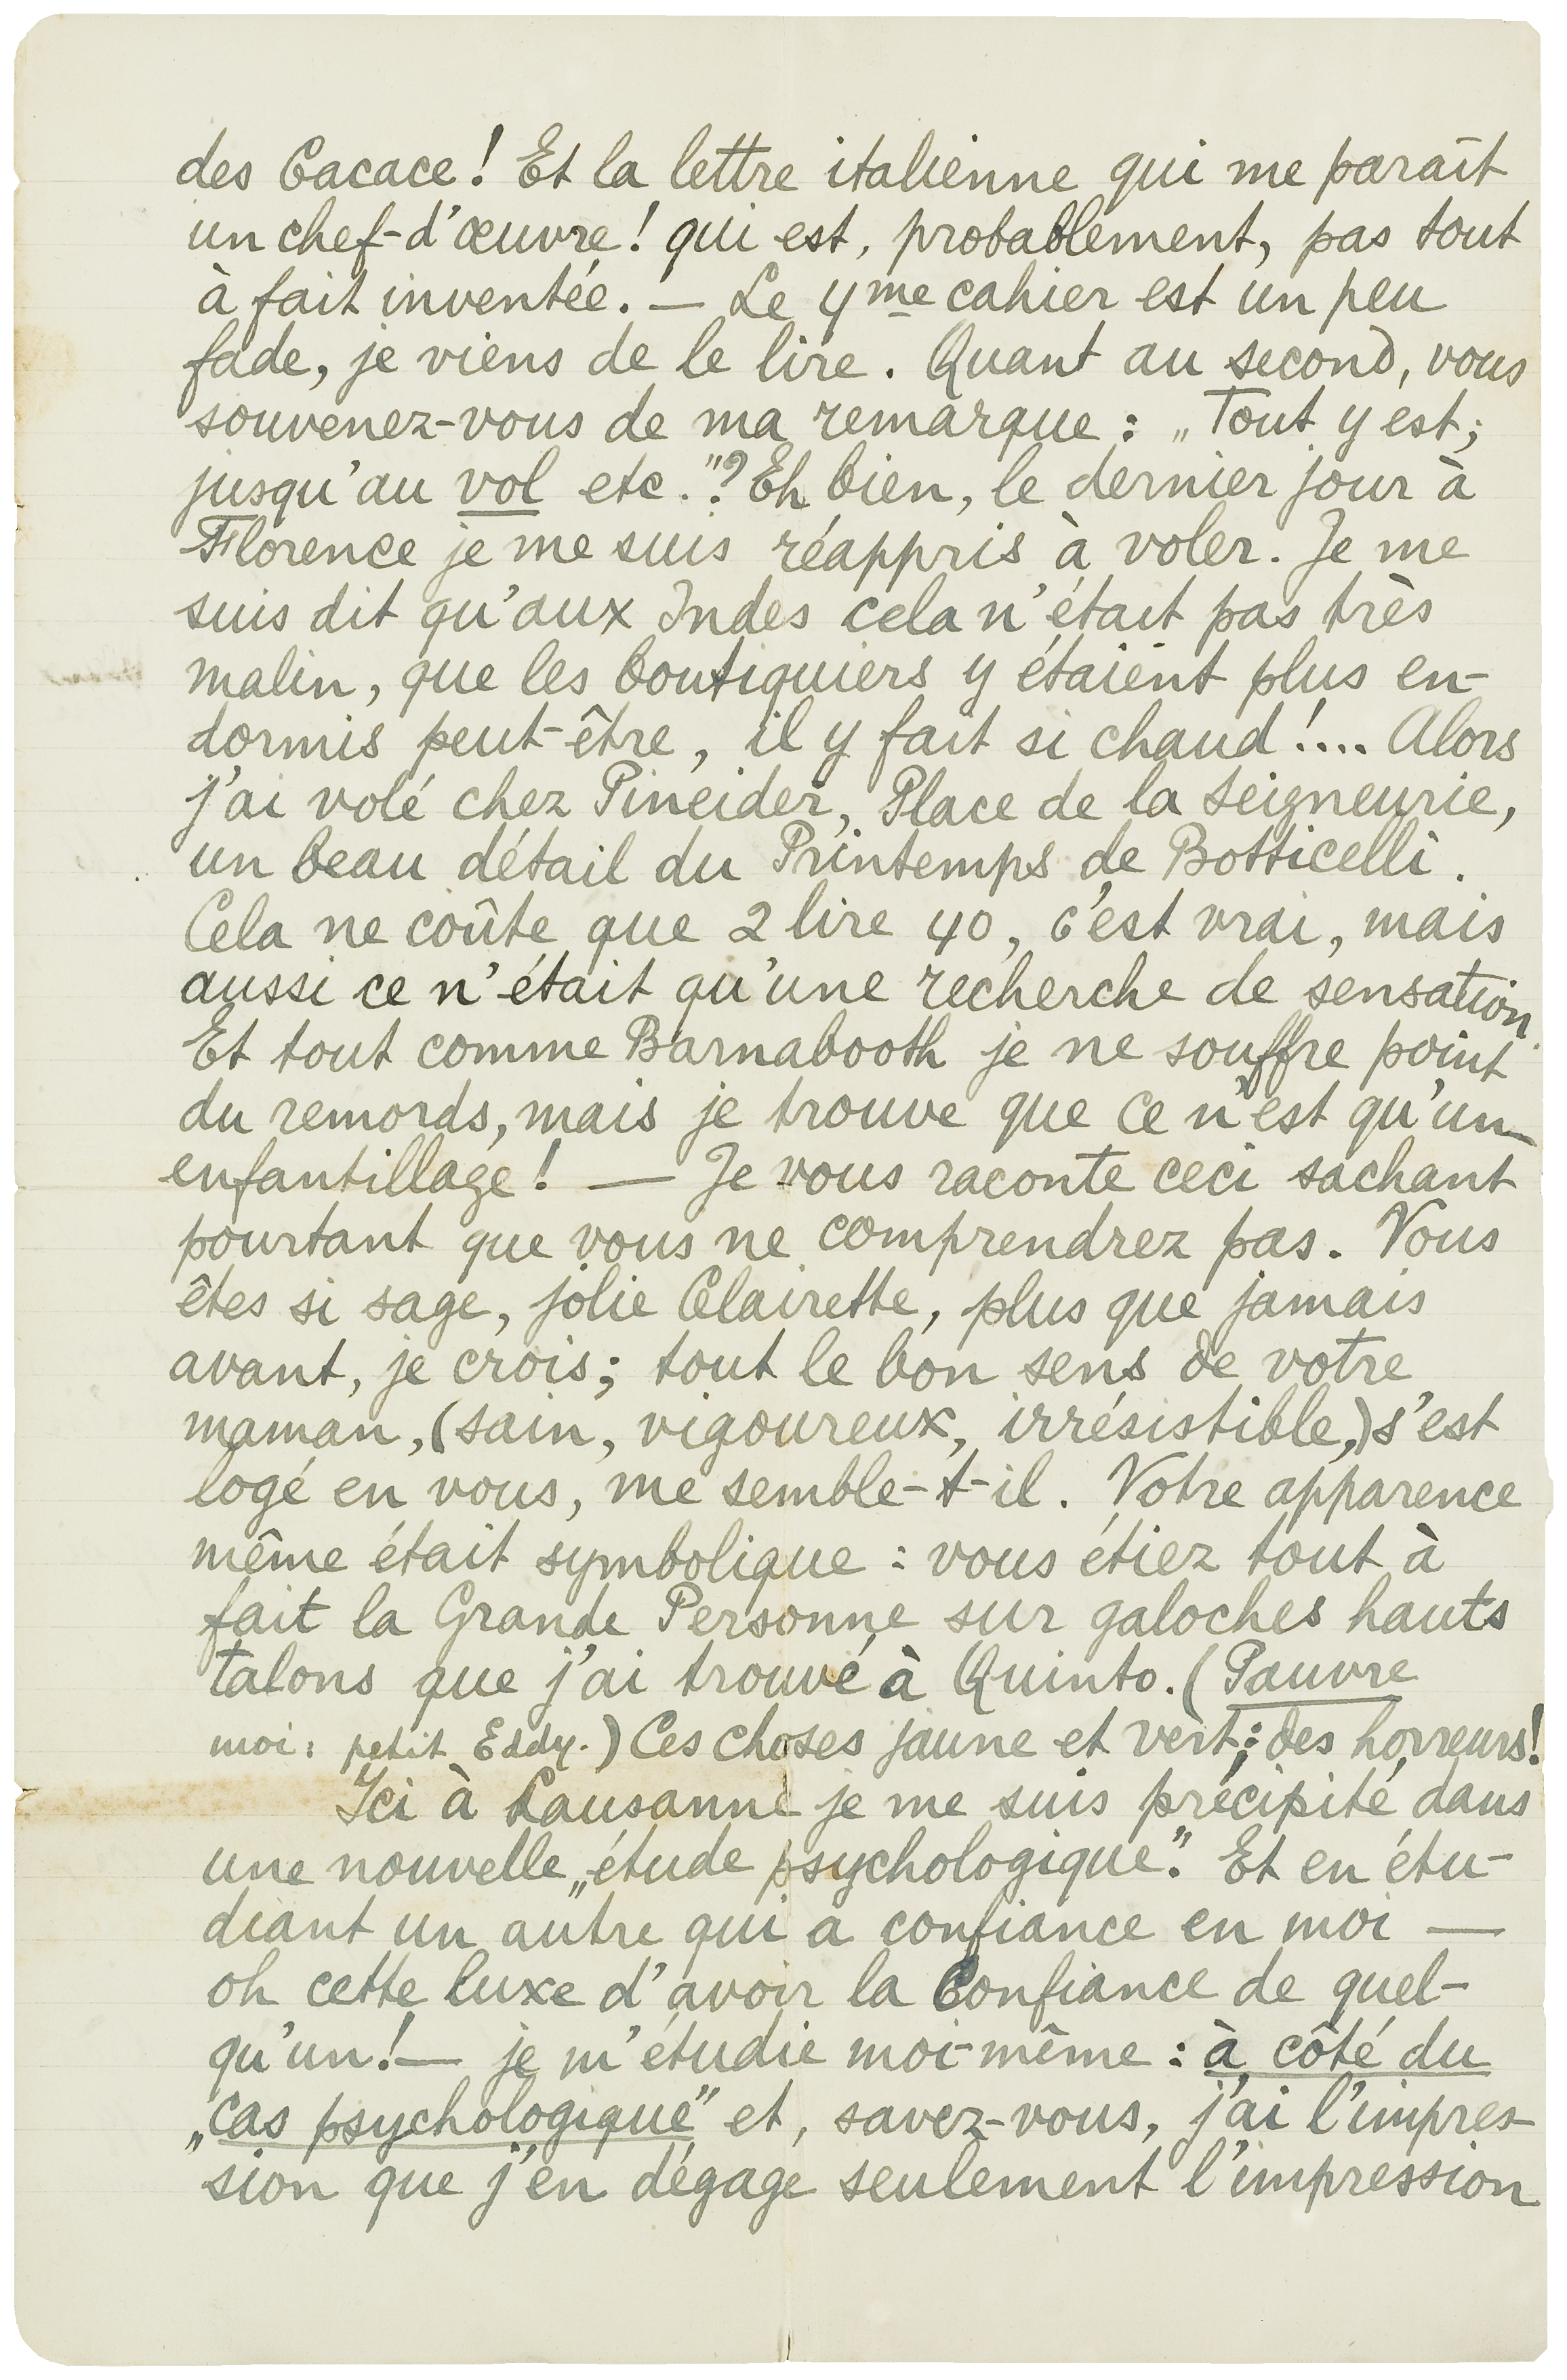 des Cacace! Et la lettre italienne qui me paraît
un chef-d'œuvre! qui est, probablement, pas tout
à fait inventée. — Le 4me cahier est un peu
fade, je viens de le lire. Quant au second, vous
souvenez-vous de ma remarque : „Tout y est;
jusqu'au vol etc."? Eh bien, le dernier jour à
Florence je me suis réappris à voler. Je me
suis dit qu'aux Indes cela n'était pas très
malin, que les boutiquiers y étaient plus en-
dormis peut-être, il y fait si chaud!.... Alors
j'ai volé chez Pineider, Place de la Seigneurie,
un beau détail du Printemps de Botticelli.
Cela ne coûte que 2 lire 40, c'est vrai, mais
aussi ce n'était qu'une recherche de sensation.
Et tout comme Barnabooth je ne souffre point
du remords, mais je trouve que ce n'est qu'un
enfantillage! — Je vous raconte ceci sachant
pourtant que vous ne comprendrez pas. Vous
êtes si sage, jolie Clairette, plus que jamais
avant, je crois; tout le bon sens de votre
maman, (sain, vigoureux, irrésistible,) s'est
logé en vous, me semble-t-il. Votre apparence
même était symbolique : vous étiez tout à
fait la Grande Personne sur galoches hauts
talons que j'ai trouvé à Quinto. (Pauvre
moi: petit Eddy.) Ces choses jaune et vert; des horreurs!
Ici à Lausanne je me suis précipité dans
une nouvelle „étude psychologique". Et en étu-
diant un autre qui a confiance en moi —
oh cette luxe d'avoir la Confiance de quel-
qu'un! — je m'étudie moi-même : à côté du
„cas psychologique" et, savez-vous, j'ai l'impres-
sion que j'en dégage seulement l'impression